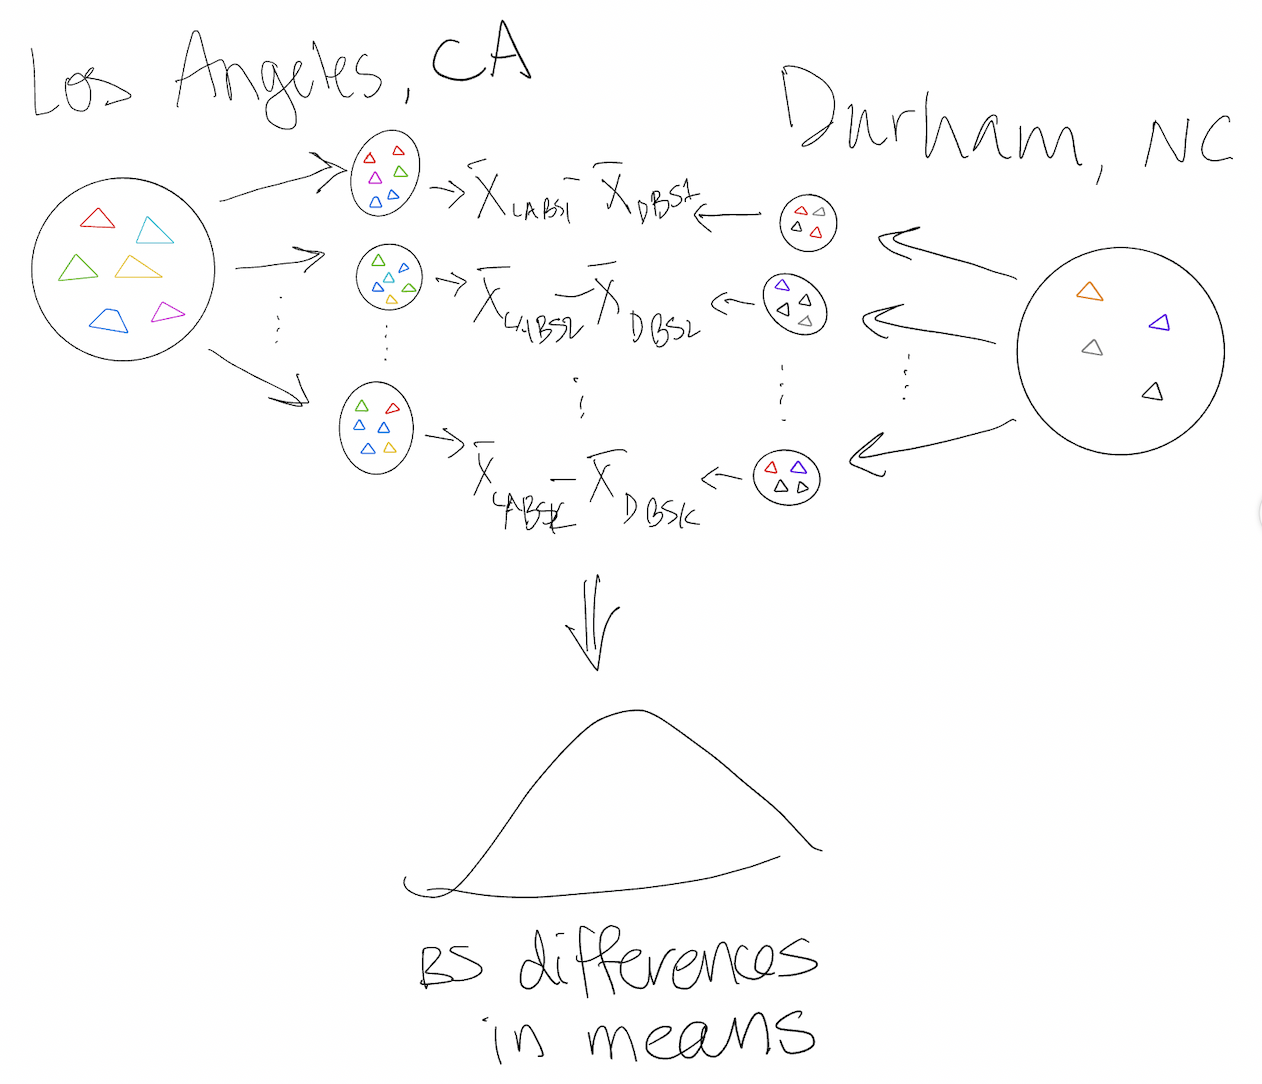 Los Angeles, CA
Durham, NC
X̄LABS1 - X̄DBS1
X̄LABS2 - X̄DBS2
X̄LABSK - X̄DBSK
BS differences
in means